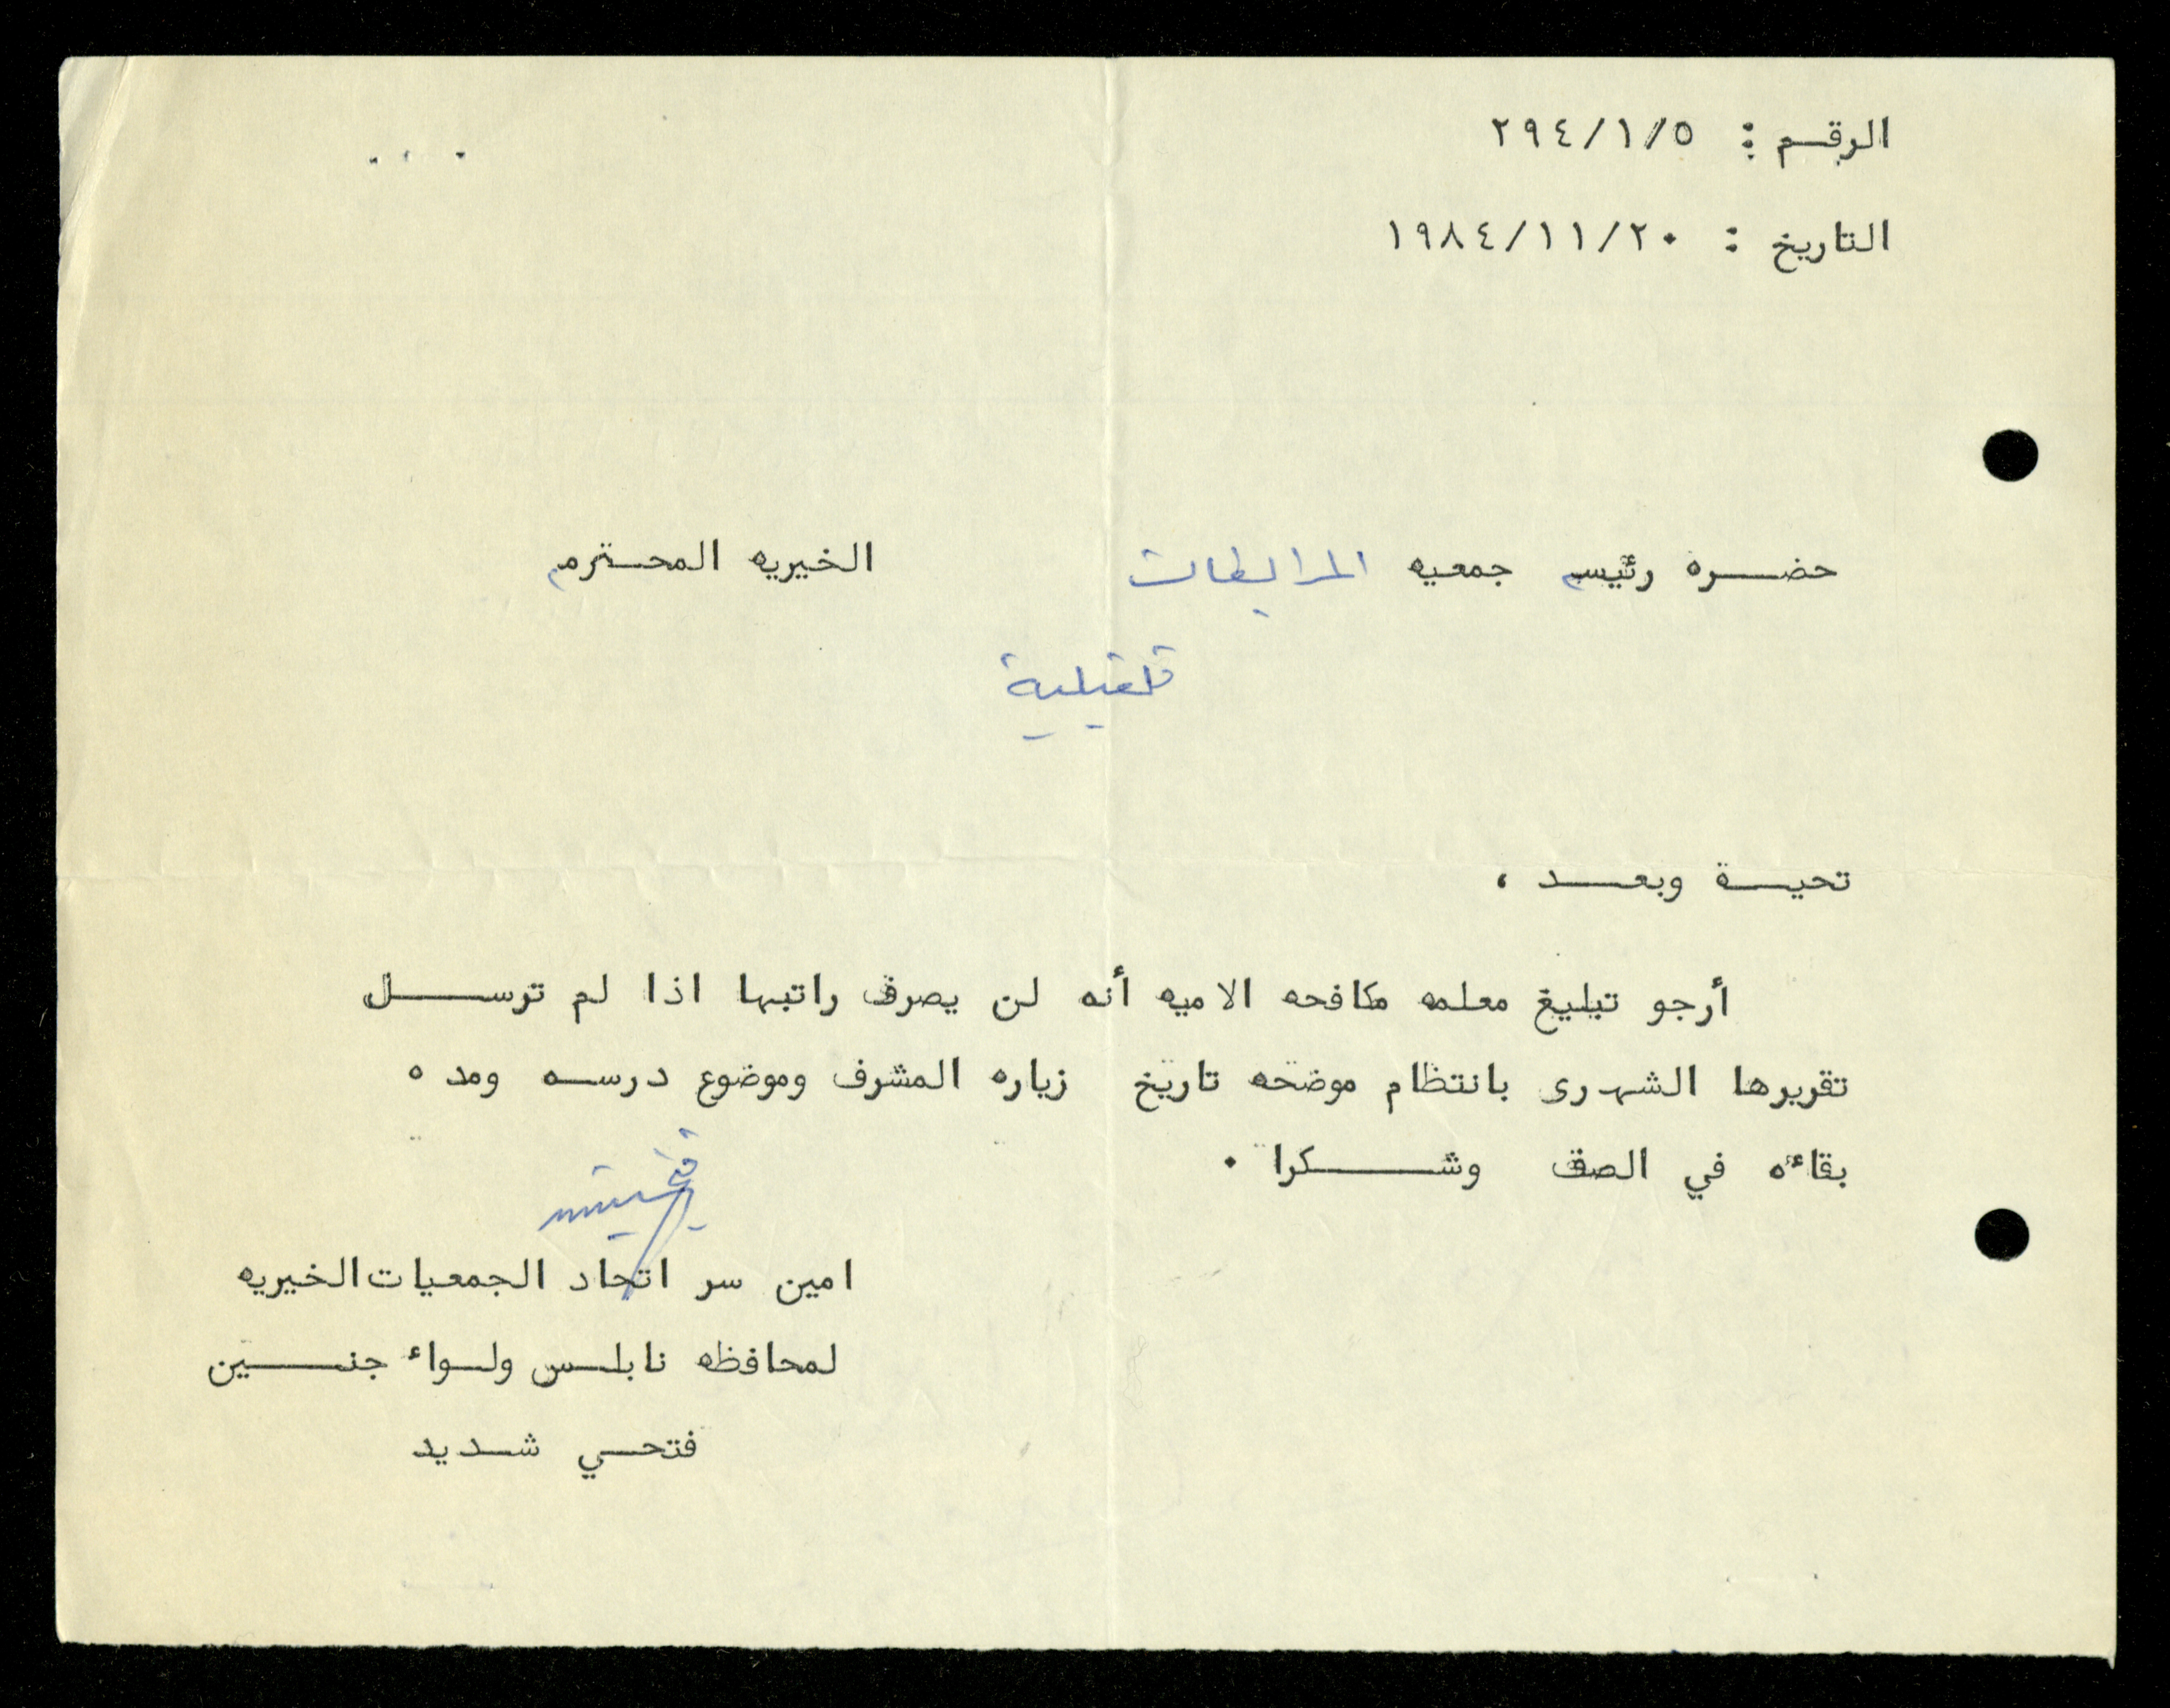 الرقم : ٢٩٤/١/٥
التاريخ : ١٩٨٤/١١/٢٠
حضره رئيسه جمعيه المرابطات الخيريه المحترمه
قلقيلية
تحية وبعد ،
أرجو تبليغ معلمه مكافحه الاميه أنه لن يصرف راتبها اذا لم ترسل
تقريرها الشهرى بانتظام موضحه تاريخ زياره المشرف وموضوع درسه ومده
بقاءه في الصف وشكرا .
امين سر اتحاد الجمعيات الخيريه
لمحافظه نابلس ولواء جنين
فتحي شديد